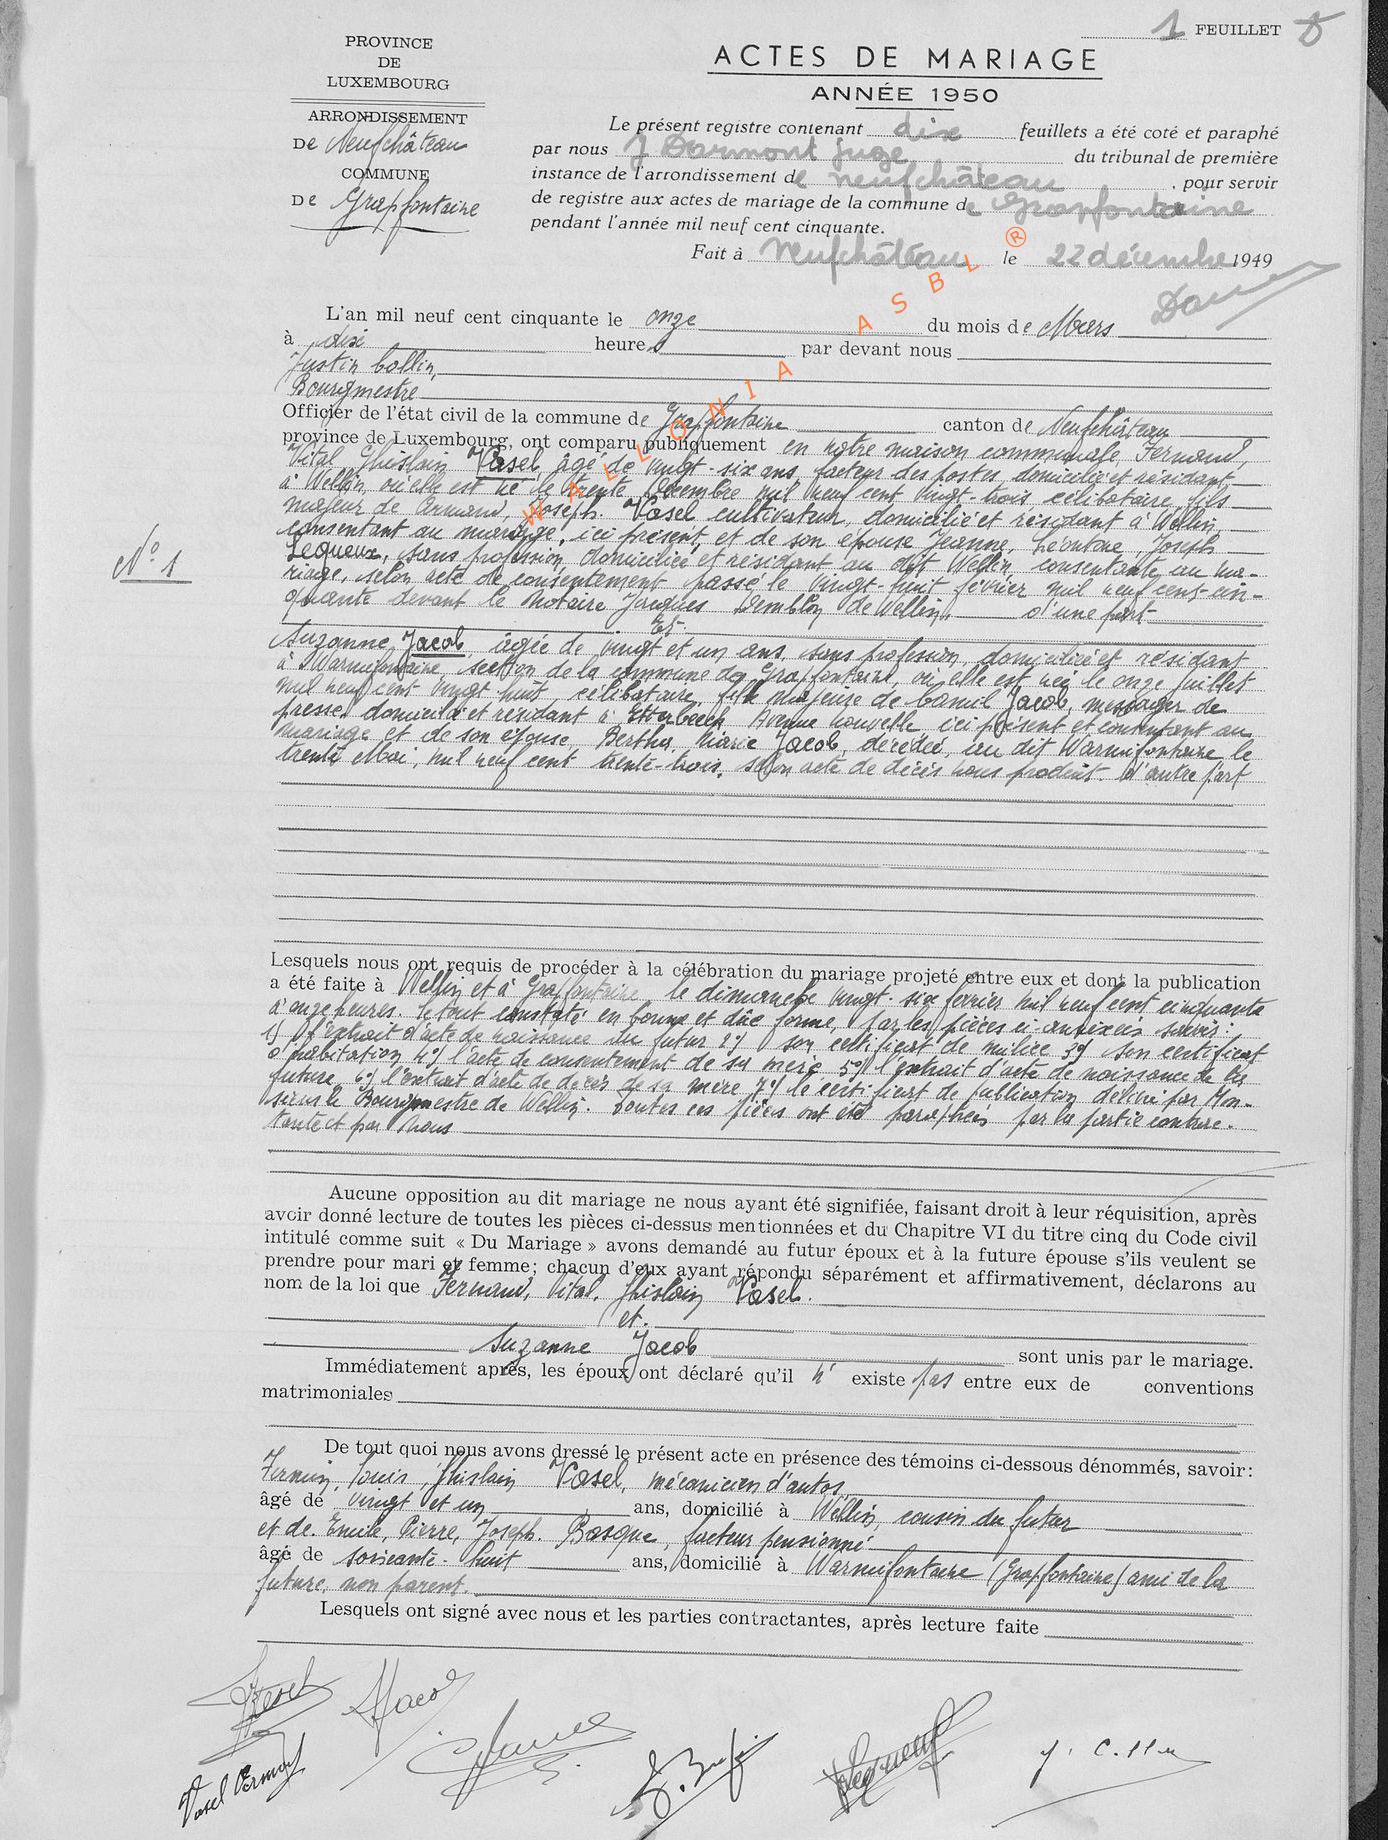 1 FEUILLET
PROVINCE
DE
LUXEMBOURG
ARRONDISSEMENT
DE Neufchâteau
COMMUNE
DE Grapfontaine
ACTES DE MARIAGE
ANNÉE 1950
Le présent registre contenant dix feuillets a été coté et paraphé
par nous J Darmont Juge du tribunal de première
instance de l'arrondissement de Neufchâteau, pour servir
de registre aux actes de mariage de la commune de Grapfontaine
pendant l'année mil neuf cent cinquante.
Fait à Neufchâteau le 22 décembre 1949
WALLONIA ASBL ®
L'an mil neuf cent cinquante le onze du mois de Mars
à dix heures par devant nous
Justin Collin,
Bourgmestre
Officier de l'état civil de la commune de Grapfontaine canton de Neufchâteau
province de Luxembourg, ont comparu publiquement en notre maison communale, Fernand,
Vital, Ghislain Vasel, âgé de vingt-six ans, facteur des postes domicilié et résidant
à Wellin, où elle est né le trente Décembre mil neuf cent vingt-trois célibataire, fils
majeur de Armand, Joseph. Vasel cultivateur, domicilié et résidant à Wellin
consentant au mariage, ici présent, et de son épouse Jeanne, Léontine, Joseph
Lequeux, sans profession, domiciliée et résidant au dit Wellin, consentante au ma-
riage, selon acte de consentement passé le vingt-huit février mil neuf cent-cin-
quante devant le Notaire Jacques Demblon de Wellin, d'une part
Et
N° 1
Suzanne Jacob, âgée de vingt et un ans, sans profession, domiciliée et résidant
à Warmifontaine, section de la commune de Grapfontaine, où elle est née le onze juillet
mil neuf cent vingt huit, célibataire, fille majeure de Camil Jacob, messager de
presse, domicilié et résidant à Etterbeech Avenue nouvelle, ici présent et consentant au
mariage et de son épouse, Bertha, Marie Jacob, décédée, au dit Warmifontaine le
trente Mai, mil neuf cent trente-trois, selon acte de décès nous produit. D'autre part
Lesquels nous ont requis de procéder à la célébration du mariage projeté entre eux et dont la publication
a été faite à Wellin et à Grapfontaine le dimanche vingt-six février mil neuf cent cinquante
à onze heures. Le tout constaté en bonne et dûe forme, par les pièces ci-annexées savoir:
1) l'extrait d'acte de naissance du futur 2) son certificat de milice 3) son certificat
d'habitation 4) l'acte de consentement de sa mère 5) l'extrait d'acte de naissance de la
future, 6) l'extrait d'acte de décès de sa mère 7) le certificat de publication délivré par Mon-
sieur le Bourgmestre de Wellin. Toutes ces pièces ont été paraphées par la partie contrac-
tante et par nous
Aucune opposition au dit mariage ne nous ayant été signifiée, faisant droit à leur réquisition, après
avoir donné lecture de toutes les pièces ci-dessus mentionnées et du Chapitre VI du titre cinq du Code civil
intitulé comme suit « Du Mariage » avons demandé au futur époux et à la future épouse s'ils veulent se
prendre pour mari et femme; chacun d'eux ayant répondu séparément et affirmativement, déclarons au
nom de la loi que Fernand, Vital, Ghislain Vasel.
et.
Suzanne Jacob sont unis par le mariage.
Immédiatement après, les époux ont déclaré qu'il n' existe pas entre eux de conventions
matrimoniales
De tout quoi nous avons dressé le présent acte en présence des témoins ci-dessous dénommés, savoir:
Firmin, Louis, Ghislain Vasel, mécanicien d'autos
âgé de vingt et un ans, domicilié à Wellin, cousin du futur
et de Emile, Pierre, Joseph. Basque, facteur pensionné
âgé de soixante-huit ans, domicilié à Warmifontaine (Grapfontaine) ami de la
future, non parent.
Lesquels ont signé avec nous et les parties contractantes, après lecture faite
Vasel
Jacob
Vasel Armand
J. Collin